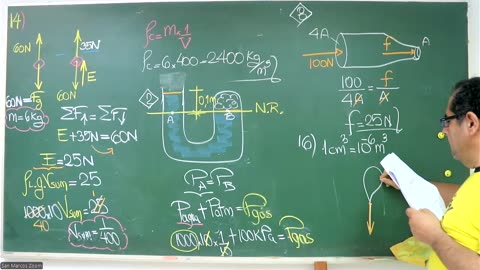 14)
60N
35N
E
60N
60N = Fg
m = 6Kg
ΣF↑ = ΣF↓
E + 35N = 60N
E = 25N
ρL.g.Vsum = 25
1000.10 Vsum = 25
40
Vsum = 1/400
ρc = m.1/V
ρc = 6x400 = 2400 Kg/m³
2
0,1m
N.R.
A
B
PA = PB
Pagua + Patm = Pgas
1000.10.1/10 + 100KPa = Pgas
3
4A
A
100N
f
100/4A = f/A
f = 25N
16) 1cm³ = 10⁻⁶m³
San Marcos Zoom